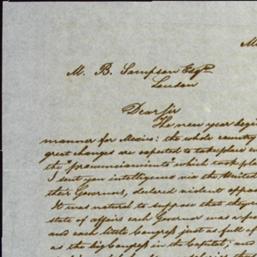 Me
M. B. Sampson Esqr.
London
Dear Sir
The new year begi
manner for Mexico: the whole country
great changes are expected to take place
the "pronunciamento" which took pl
I sent you intelligence via the United
their Governors, declared violent oppo
It was natural to suppose that
state of affairs each Governor was a
and each little Congress just as full of
as the big Congress in the Capitol; and